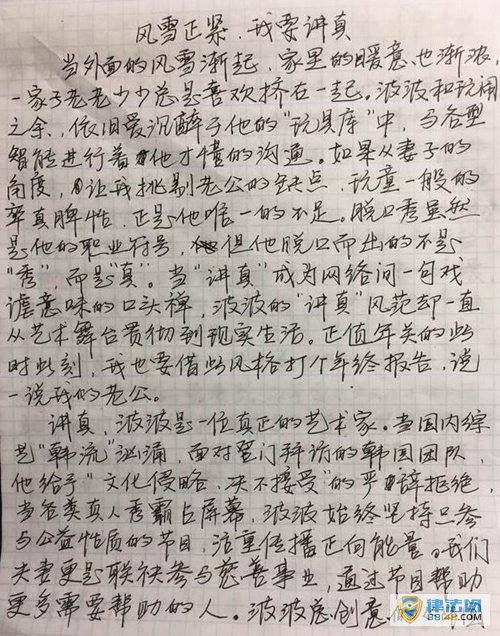 风雪正紧，我要讲真
当外面的风雪渐起，家里的暖意也渐浓，
一家子老老少少总是喜欢挤在一起。波波和玩闹
之余，依旧爱沉醉于他的“玩具库”中，与各型
智能进行着他才懂的沟通。如果从妻子的
角度，让我挑剔老公的缺点，玩童一般的
率真脾性，正是他唯一的不足。脱口秀虽然
是他的职业符号，但他脱口而出的不是
“秀”，而是“真”。当“讲真”成为网络间一句戏
谑意味的口头禅，波波的“讲真”风范却一直
从艺术舞台贯彻到现实生活。正值年关的此
时此刻，我也要借此风格打个年终报告，说
一说我的老公。
讲真，波波是一位真正的艺术家。当国内综
艺“韩流”汹涌，面对登门拜访的韩国团队，
他给予“文化侵略，决不接受”的严辞拒绝，
当各类真人秀霸占屏幕，波波始终坚持只参
与公益性质的节目，注重传播正向能量。我们
夫妻更是联袂参与慈善事业，通过节目帮助
更多需要帮助的人。波波总创意
律志网